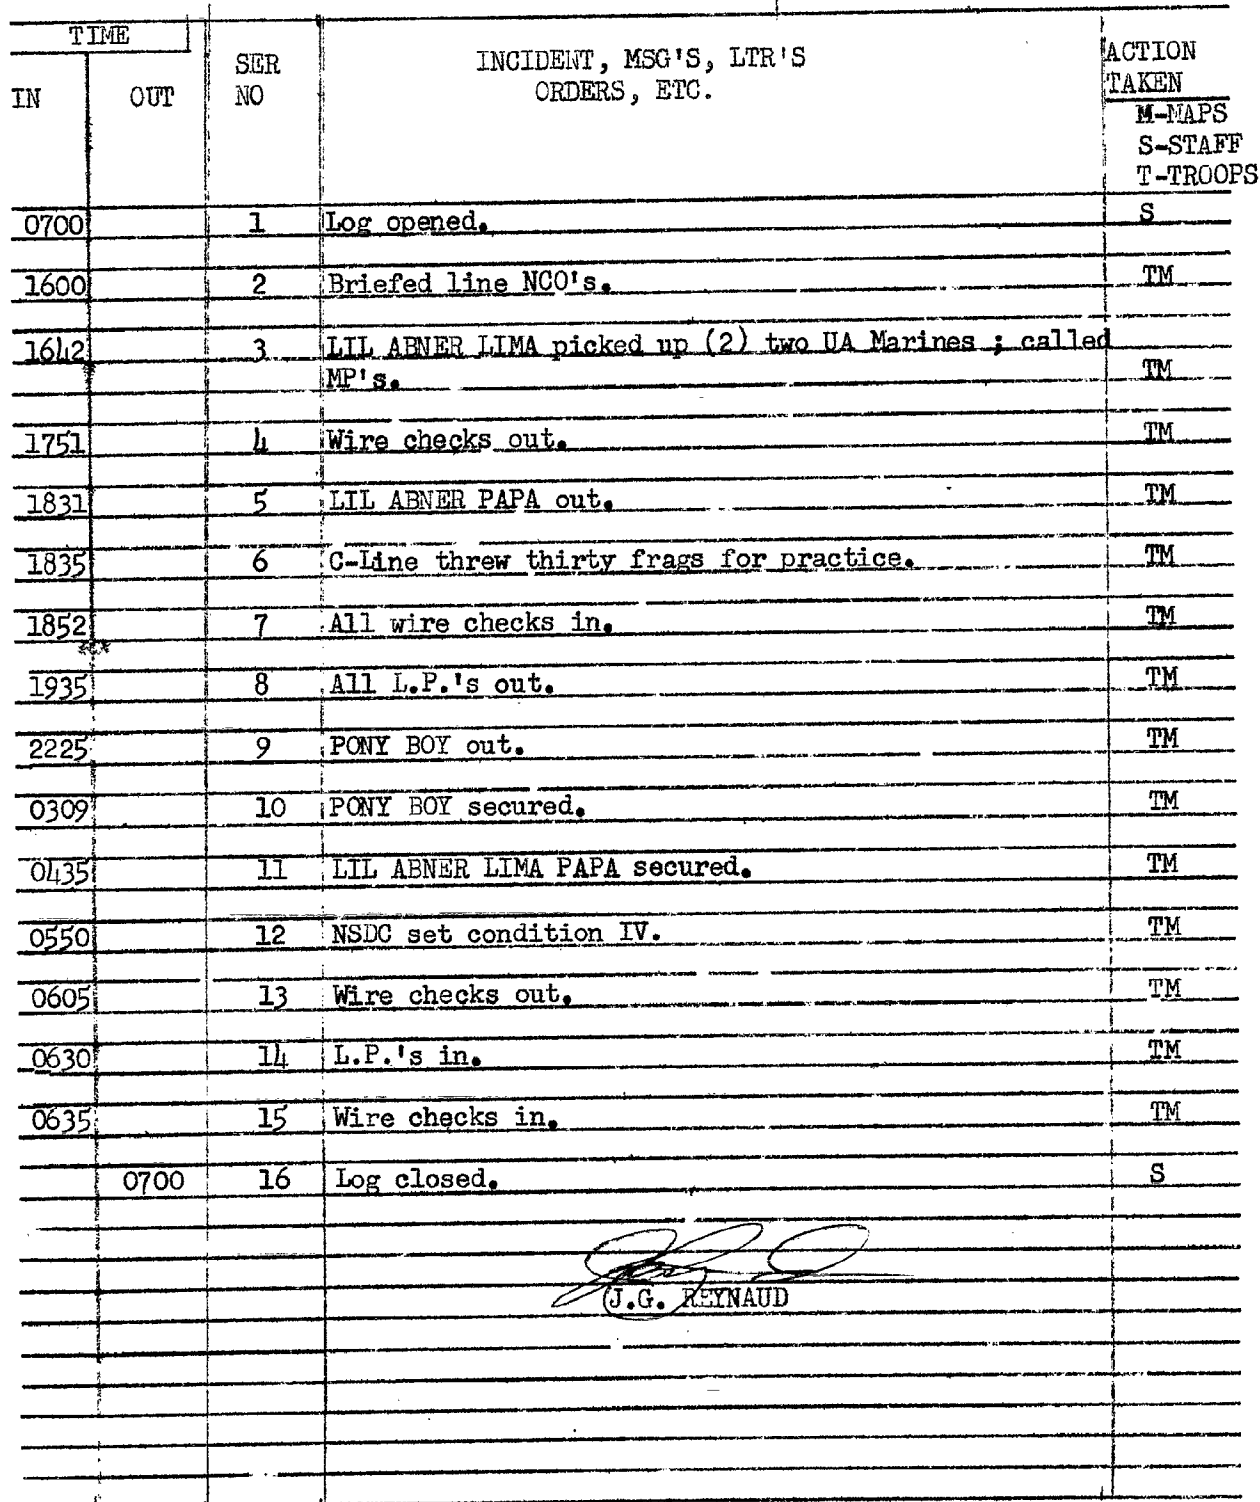 TIME
IN OUT SER NO INCIDENT, MSG'S, LTR'S ORDERS, ETC. ACTION TAKEN
M-MAPS
S-STAFF
T-TROOPS
0700 1 Log opened. S
1600 2 Briefed line NCO's. TM
1642 3 LIL ABNER LIMA picked up (2) two UA Marines ; called
MP's. TM
1751 4 Wire checks out. TM
1831 5 LIL ABNER PAPA out. TM
1835 6 C-Line threw thirty frags for practice. TM
1852 7 All wire checks in. TM
1935 8 All L.P.'s out. TM
2225 9 PONY BOY out. TM
0309 10 PONY BOY secured. TM
0435 11 LIL ABNER LIMA PAPA secured. TM
0550 12 NSDC set condition IV. TM
0605 13 Wire checks out. TM
0630 14 L.P.'s in. TM
0635 15 Wire checks in. TM
0700 16 Log closed. S
J.G. REYNAUD